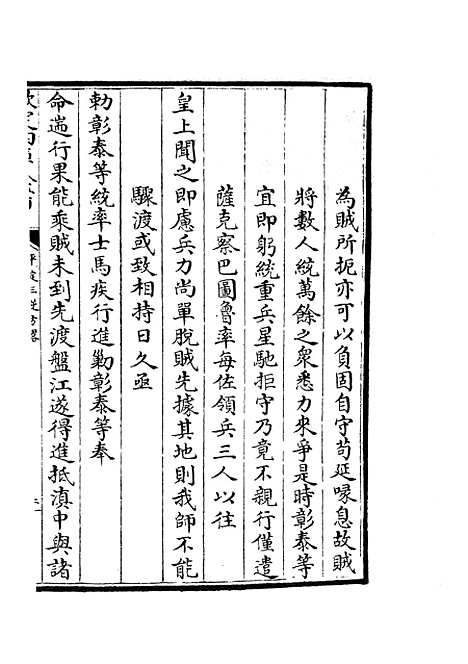 為賊所扼亦可以負固自守苟延喙息故賊
將數人統萬餘之衆悉力來爭是時彰泰等
宜即躬統重兵星馳拒守乃竟不親行僅遣
薩克察巴圖魯率每佐領兵三人以往
皇上聞之即慮兵力尚單脫賊先據其地則我師不能
驟渡或致相持日久亟
勅彰泰等統率士馬疾行進勦彰泰等奉
命遄行果能乘賊未到先渡盤江遂得進抵滇中與諸
平定三逆方略